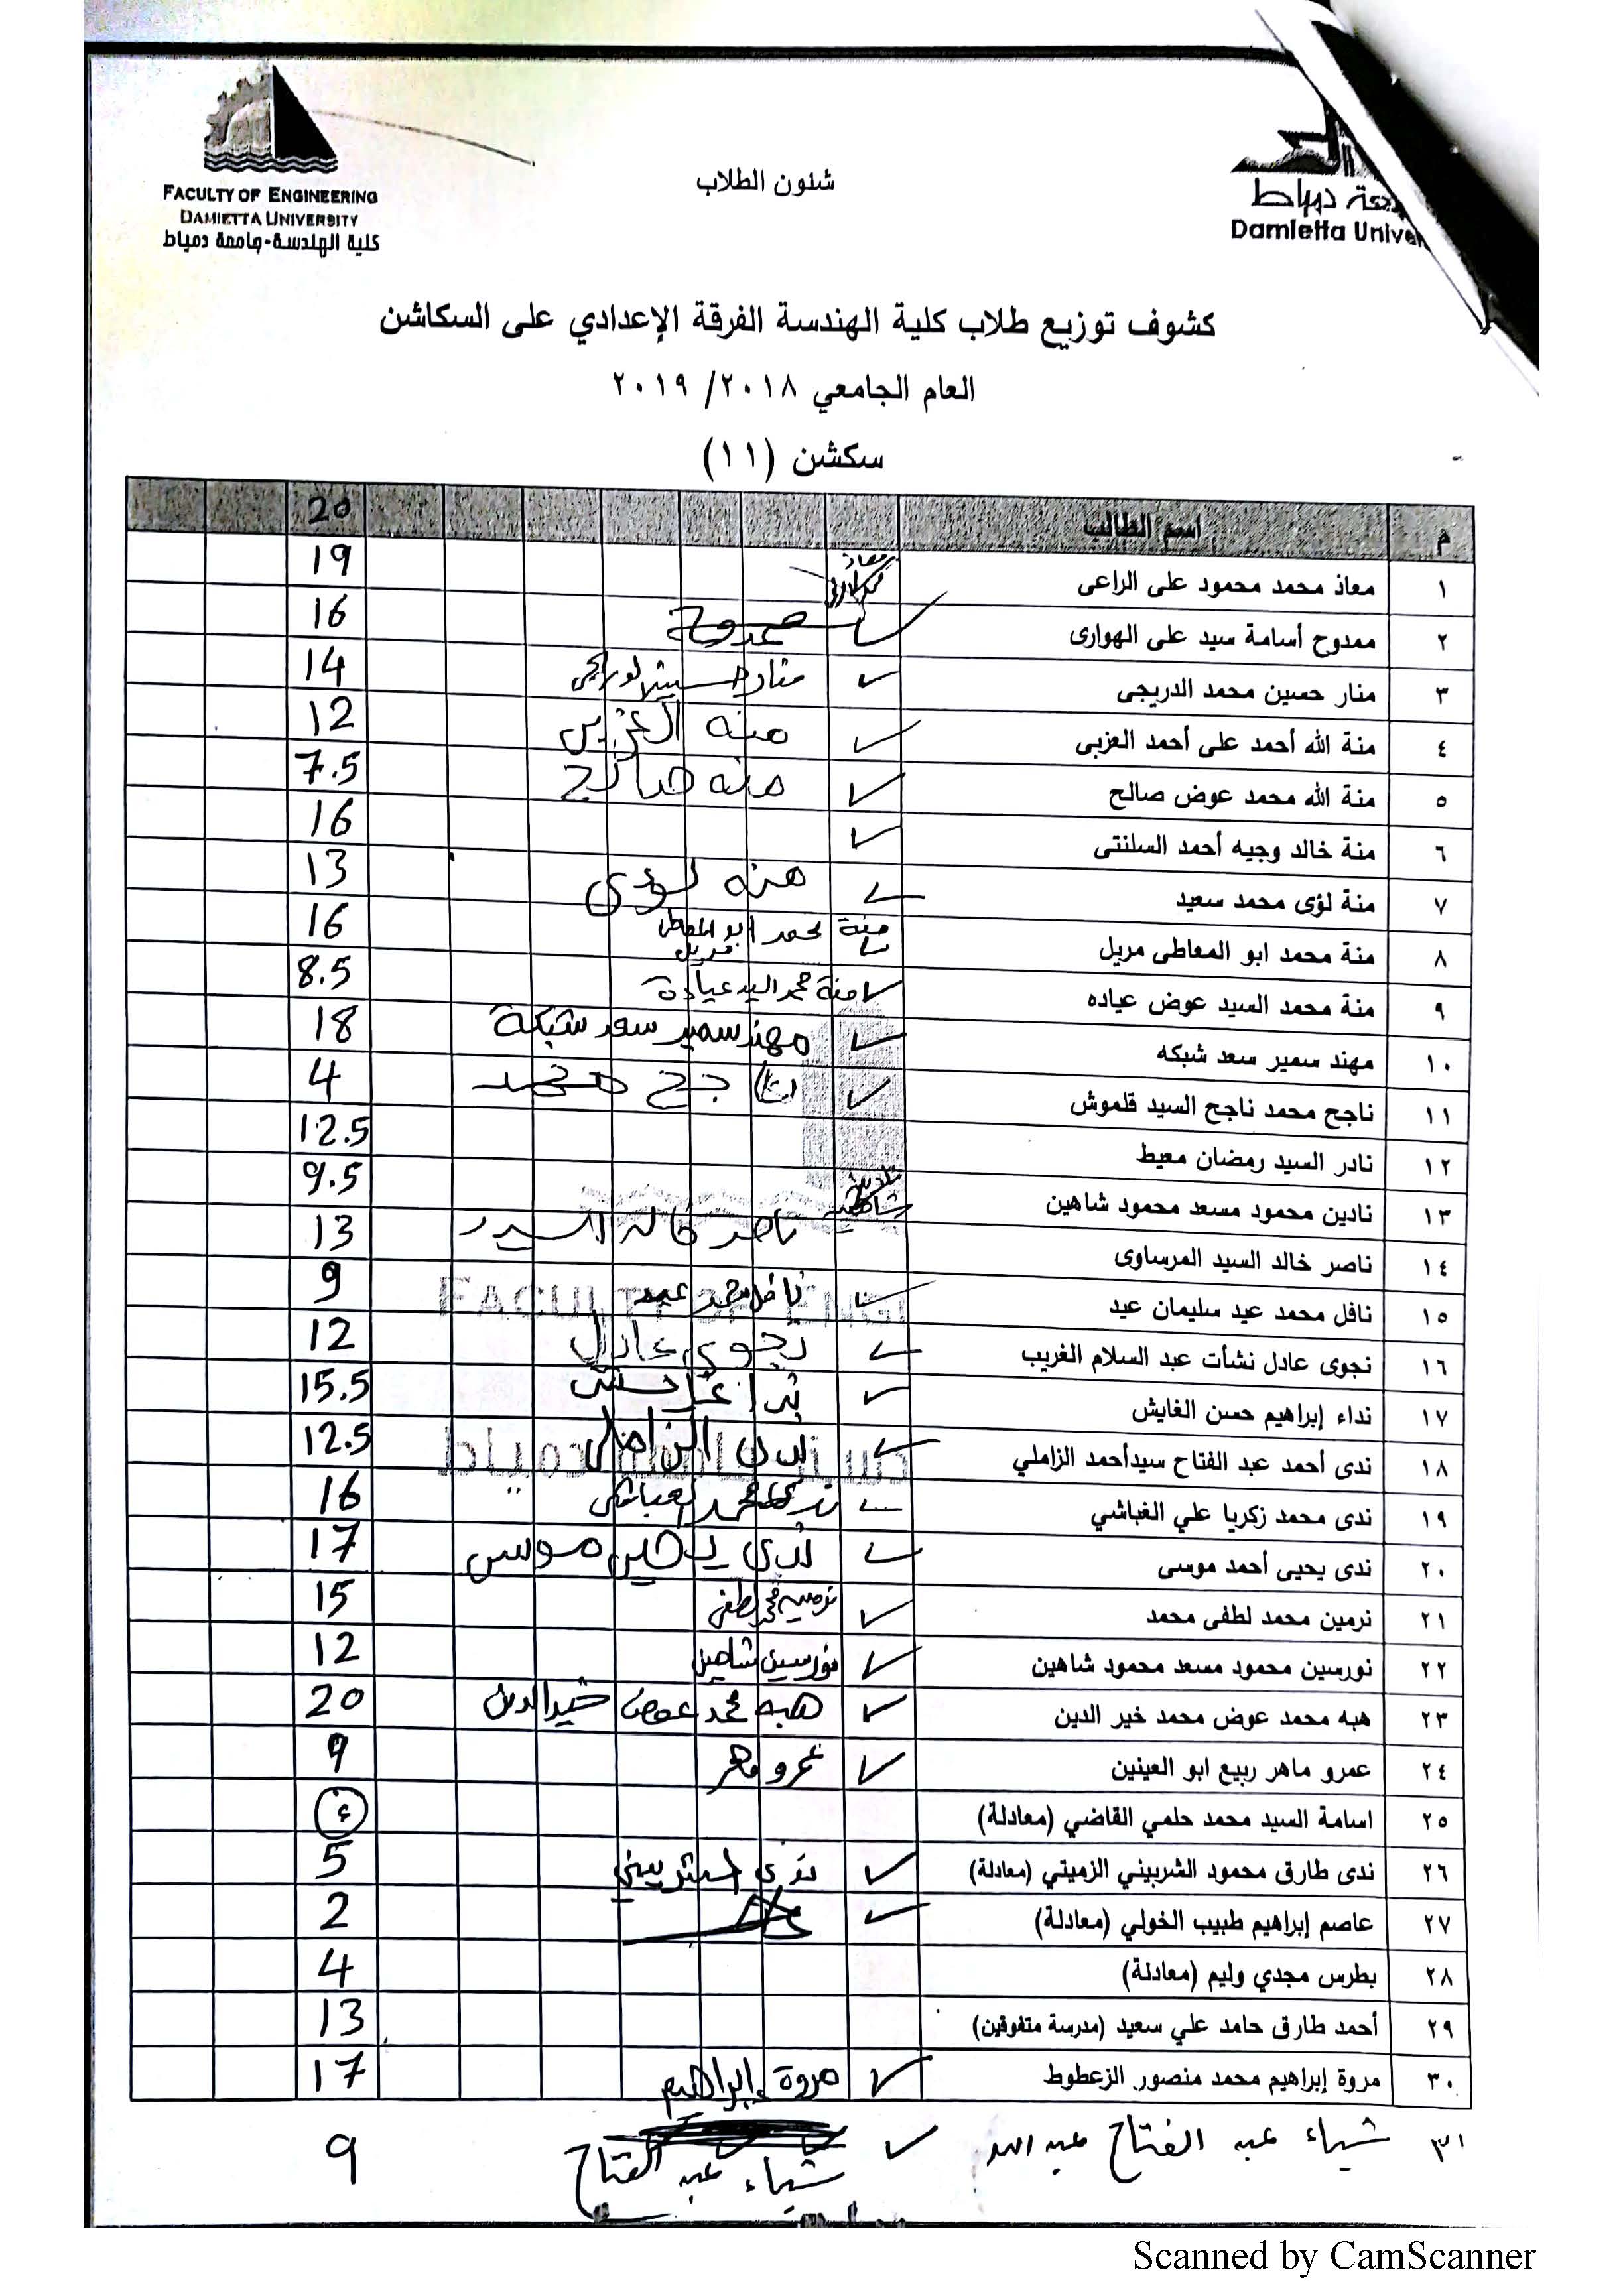 FACULTY OF ENGINEERING
DAMIETTA UNIVERSITY
كلية الهندسة-جامعة دمياط
شئون الطلاب
جامعة دمياط
Damietta Unive
كشوف توزيع طلاب كلية الهندسة الفرقة الإعدادي على السكاشن
العام الجامعي ٢٠١٨/ ٢٠١٩
سكشن (١١)
م اسم الطالب 20
١ معاذ محمد محمود على الراعى معاذ 19
٢ ممدوح أسامة سيد على الهوارى ممدوح 16
٣ منار حسين محمد الدريجى منار حسين الدريجى 14
٤ منة الله أحمد على أحمد العزبى منه العزبى 12
٥ منة الله محمد عوض صالح منه صالح 7.5
٦ منة خالد وجيه أحمد السلنتى 16
٧ منة لؤى محمد سعيد منه لؤى 13
٨ منة محمد ابو المعاطى مريل منة محمد ابو المعاطى مريل 16
٩ منة محمد السيد عوض عياده منة محمد السيد عيادة 8.5
١٠ مهند سمير سعد شبكه مهند سمير سعد شبكة 18
١١ ناجح محمد ناجح السيد قلموش ناجح محمد 4
١٢ نادر السيد رمضان معيط 12.5
١٣ نادين محمود مسعد محمود شاهين نادين شاهين 9.5
١٤ ناصر خالد السيد المرساوى ناصر خالد السيد 13
١٥ نافل محمد عيد سليمان عيد نافل محمد عيد 9
١٦ نجوى عادل نشأت عبد السلام الغريب نجوى عادل 12
١٧ نداء إبراهيم حسن الغايش 15.5
١٨ ندى أحمد عبد الفتاح سيدأحمد الزاملي ندى الزاملى 12.5
١٩ ندى محمد زكريا علي الغباشي ندى محمد الغباشى 16
٢٠ ندى يحيى أحمد موسى ندى يحيى موسى 17
٢١ نرمين محمد لطفى محمد نرمين محمد لطفى 15
٢٢ نورسين محمود مسعد محمود شاهين نورسين شاهين 12
٢٣ هبه محمد عوض محمد خير الدين هبه محمد عوض خير الدين 20
٢٤ عمرو ماهر ربيع ابو العينين عمرو ماهر 9
٢٥ اسامة السيد محمد حلمي القاضي (معادلة) غ
٢٦ ندى طارق محمود الشربيني الزميتي (معادلة) ندى الشربيني 5
٢٧ عاصم إبراهيم طبيب الخولي (معادلة) 2
٢٨ بطرس مجدي وليم (معادلة) 4
٢٩ أحمد طارق حامد علي سعيد (مدرسة متفوقين) 13
٣٠ مروة إبراهيم محمد منصور الزعطوط مروة إبراهيم 17
٣١ شيماء عبد الفتاح عبد الله شيماء عبد الفتاح 9
Scanned by CamScanner